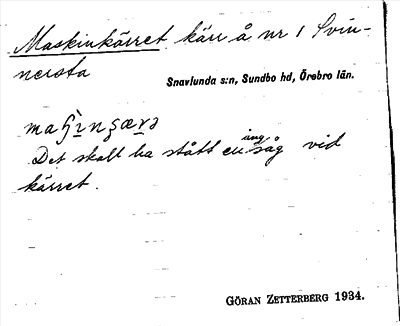 Maskinkärret kärr å nr 1 Svin-
nersta
Snavlunda s:n, Sundbo hd, Örebro län.
Det skall ha stått en ångsåg vid
kärret.
GÖRAN ZETTERBERG 1934.